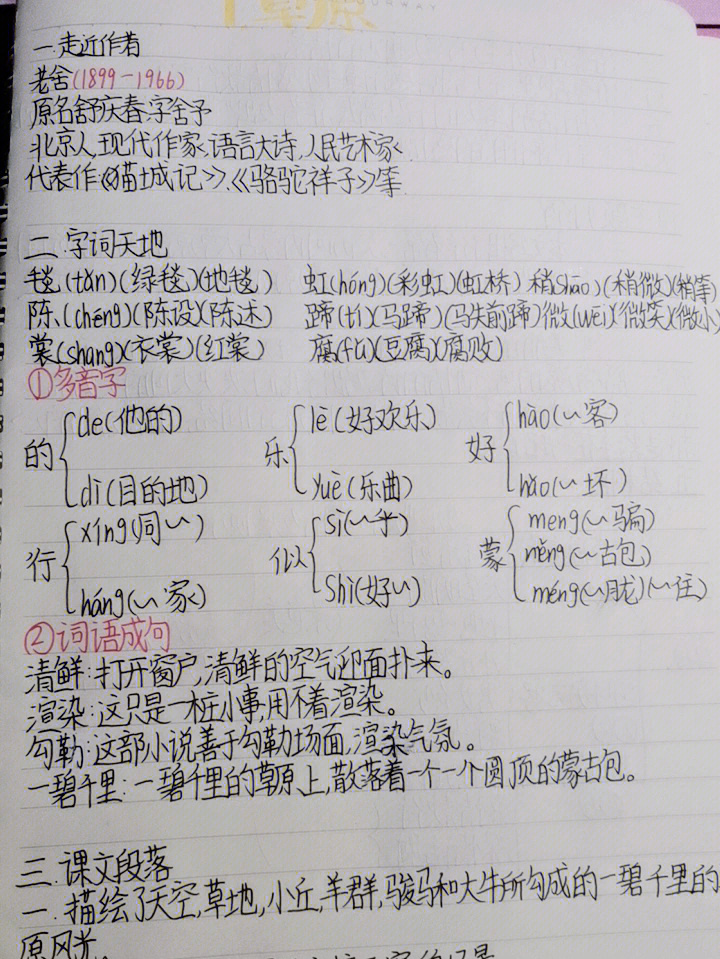 1草原
一.走近作者
老舍(1899-1966)
原名舒庆春,字舍予
北京人,现代作家,语言大诗,人民艺术家
代表作《猫城记》.《骆驼祥子》等
二.字词天地
毯(tǎn)(绿毯)(地毯) 虹(hóng)(彩虹)(虹桥) 稍(shāo)(稍微)(稍等)
陈(chén)(陈设)(陈述) 蹄(tí)(马蹄)(马失前蹄)微(wēi)(微笑)(微小)
裳(shang)(衣裳)(红裳) 腐(fǔ)(豆腐)(腐败)
①多音字
的 de(他的) dì(目的地) 乐 lè(好欢乐) yuè(乐曲) 好 hào(~客) hǎo(~坏)
行 xíng(同~) háng(~家) 似 sì(~乎) Shì(好~) 蒙 meng(~骗) měng(~古包) méng(~胧)(~住)
②词语成句
清鲜:打开窗户,清鲜的空气迎面扑来。
渲染:这只是一桩小事,用不着渲染。
勾勒:这部小说善于勾勒场面,渲染气氛。
一碧千里:一碧千里的草原上,散落着一个一个圆顶的蒙古包。
三.课文段落
一.描绘了天空,草地,小丘,羊群,骏马和大牛所勾成的一碧千里的
原风光。